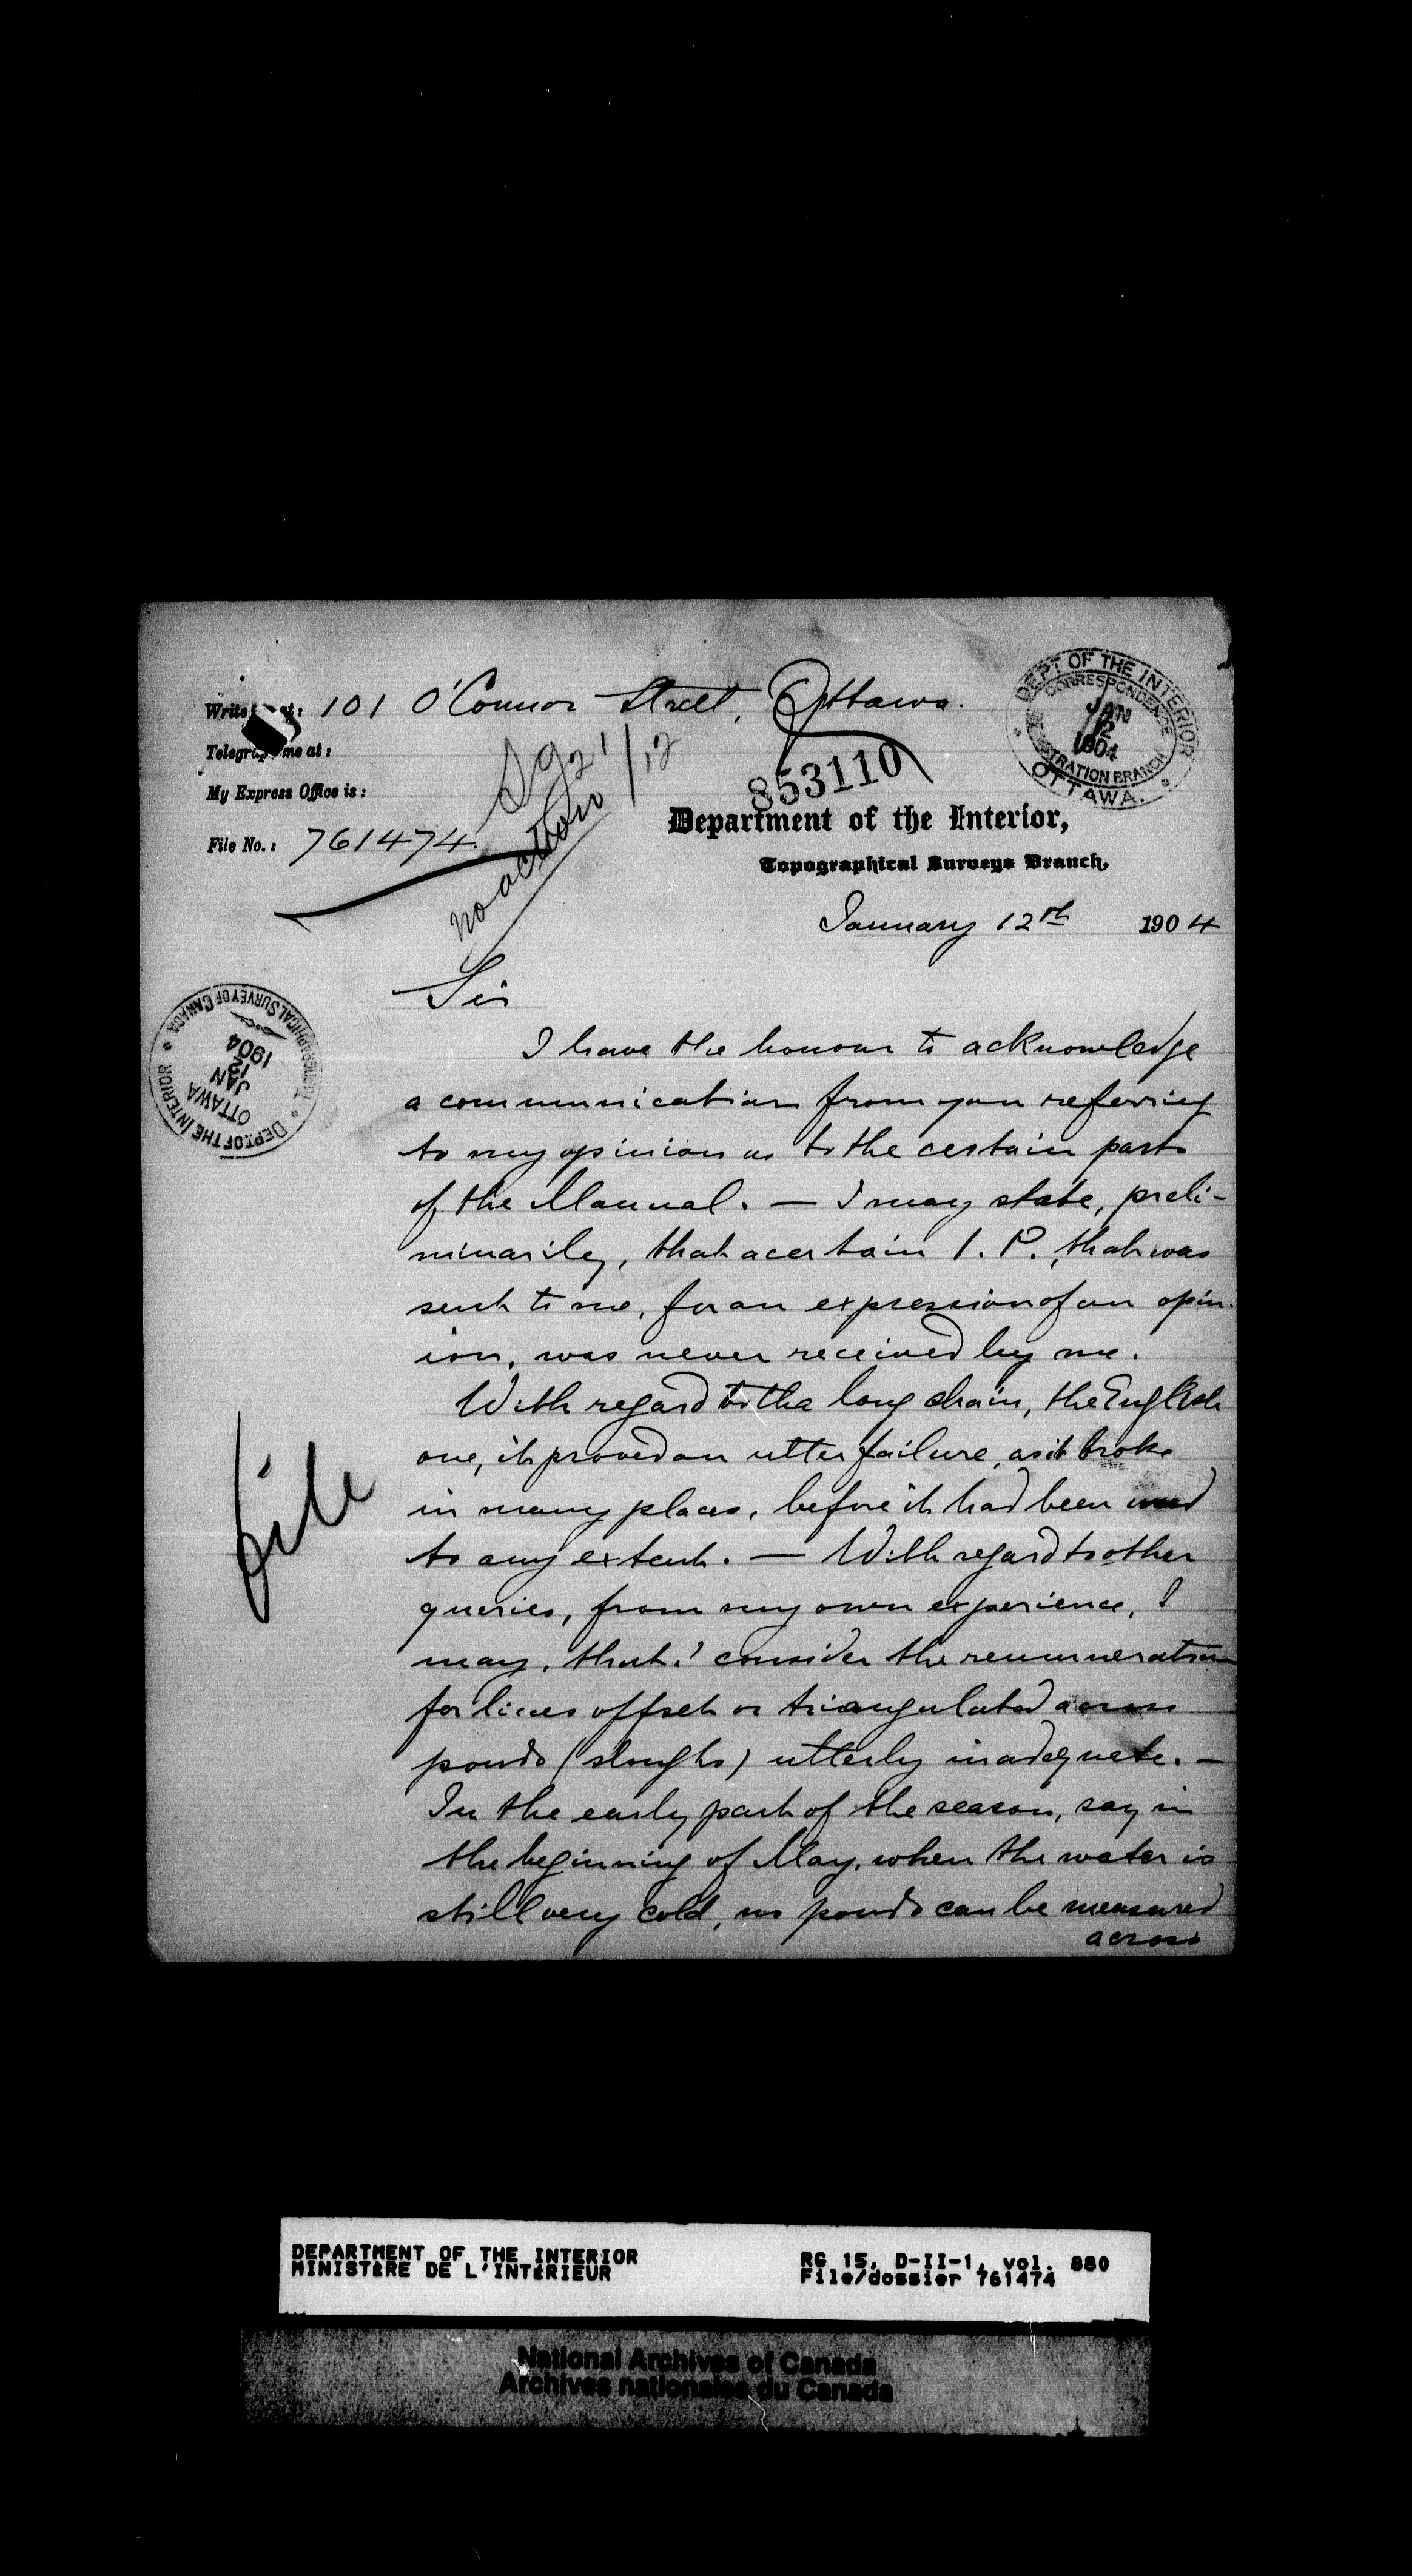 Write at: 101 O'Connor Street, Ottawa.
Telegraph me at:
My Express Office is:
File No.: 761474.
no action
1/12
853110
DEPT OF THE INTERIOR
CORRESPONDENCE
JAN
12
1904
REGISTRATION BRANCH
OTTAWA.
Department of the Interior,
Topographical Surveys Branch,
January 12th 1904
TOPOGRAPHICAL SURVEY OF CANADA
DEPT. OF THE INTERIOR
OTTAWA
JAN
12
1904
Sir
I have the honour to acknowledge
a communication from you refering
to my opinion as to the certain parts
of the Manual. — I may state, preli-
minarily, that a certain I. P., that was
sent to me, for an expression of an opin-
ion, was never received by me.
With regard to the long chain, the English
one, it proved an utter failure, as it broke
in many places, before it had been used
to any extent. — With regard to other
queries, from my own experience, I
may, that I consider the remuneration
for lines offset or triangulated across
ponds (sloughs) utterly inadequate. —
In the early part of the season, say in
the beginning of May, when the water is
still very cold, no ponds can be measured
across
file
DEPARTMENT OF THE INTERIOR
MINISTERE DE L'INTERIEUR
RG 15, D-II-1, vol. 880
File/dossier 761474
National Archives of Canada
Archives nationales du Canada